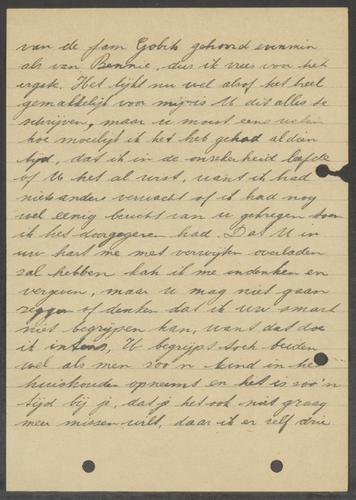 van de fam Gobits gehoord evenmin
als van Bennie, dus ik vrees voor het
ergste. Het lijkt nu wel alsof het heel
gemakkelijk voor mij is U dit alles te
schrijven, maar U moest eens weten
hoe moeilijk ik het heb gehad al dien
tijd, dat ik in de onzekerheid leefde
of U het al wist, want ik had
niets anders verwacht of ik had nog
wel eenig bericht van U gekregen toen
ik het doorgegeven had. Dat U in
uw hart me met verwijten overladen
zal hebben kan ik me indenken en
vergeven, maar U mag niet gaan
zeggen of denken dat ik uw smart
niet begrijpen kan, want dat doe
ik intens, U begrijpt toch beiden
wel als men zoo'n kind in het
huishouden opneemt en het is zoo'n
tijd bij je, dat je het ook niet graag
meer missen wilt, daar ik er zelf drie